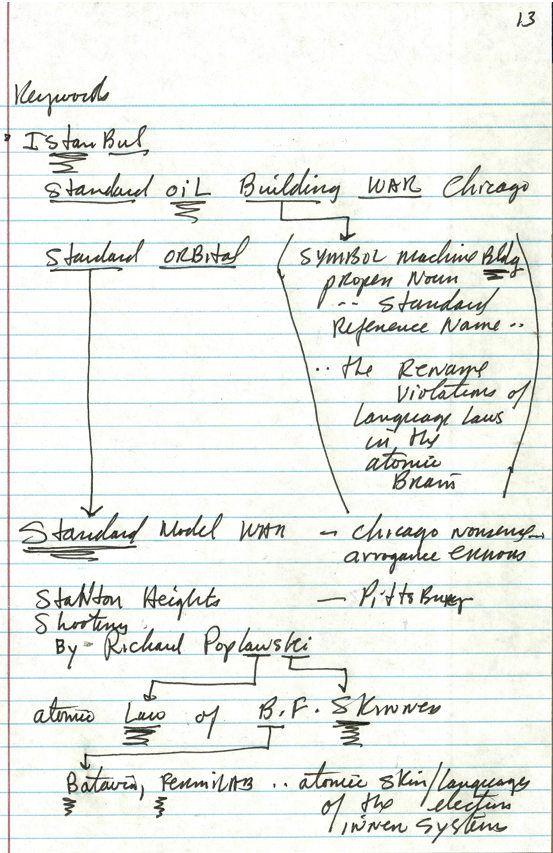 13
Keywords
IstanBul
Standard OiL Building WAR Chicago
Standard ORBital
(SYMBOL machine Bldg
propen Noun
-- Standard
Reference Name ..
.. the Rename
Violations of
Language Laws
in the
atomic
Brain)
Standard Model WAR — Chicago nonsense..
arrogance ennons
StaNton Heights — PittsBurg
Shooting
By Richard Poplawski
atomic Law of B.F. Skinner
Batavia, FermiLAB .. atomic skin/languages
of the electron
innen system